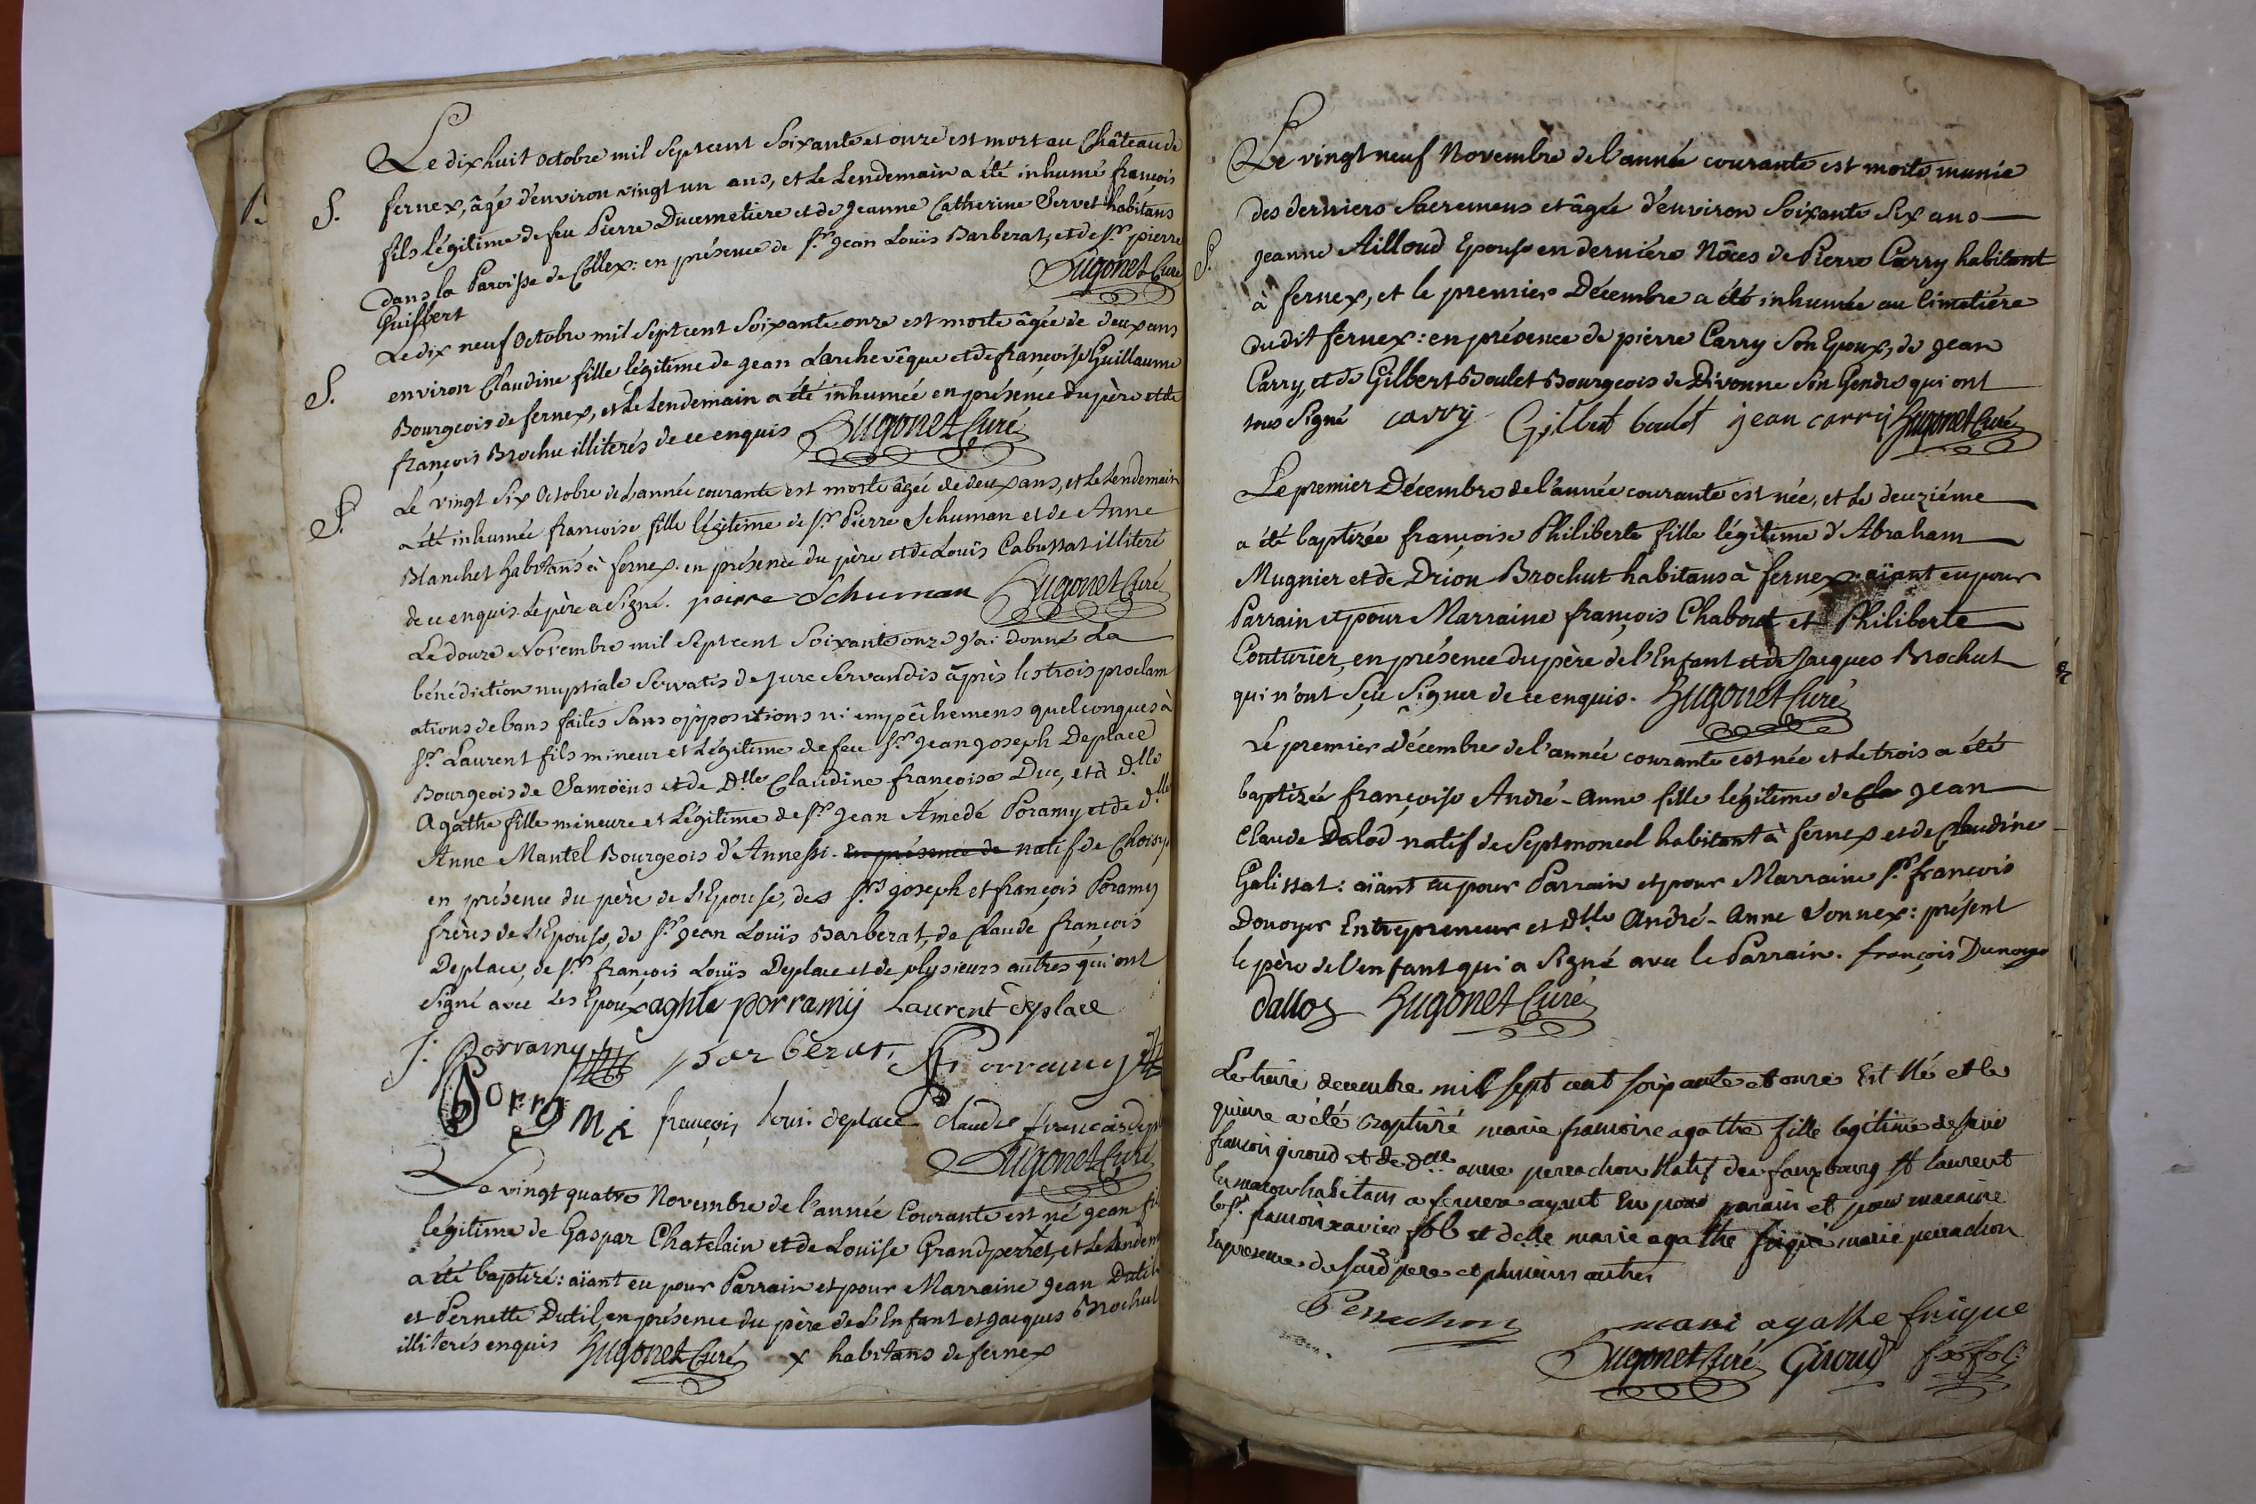 Le dix huit octobre mil Sept cent Soixante et onze est mort au Château de
S. fernex, âgé d'environ vingt un ans, et Le Lendemain a été inhumé françois
fils légitime de feu Pierre Ducemetiere et de Jeanne Catherine Servet habitans
dans la Paroisse de Collex: en présence de Sr. Jean Louïs Barberat, et de Sr. pierre
Guilbert Hugonet Curé
Le dix neuf Octobre mil Sept cent Soixante onze est morte âgée de deux ans
S. environ Claudine fille légitime de Jean Larchevêque et de françoise Guillaume
Bourgeois de fernex, et Le Lendemain a été inhumée en présence du père et de
françois Brochu illiterés de ce enquis Hugonet Curé
S. Le vingt Six Octobre de L'année courante est morte âgée de deux ans, et Le Lendemain
a été inhumée françoise fille légitime de Sr. Pierre Schuman et de Anne
Blanchet habitans à fernex. en présence du père et de Louïs Cabussat illiteré
de ce enquis Le père a Signé. peirre Schuman Hugonet Curé
Le douze Novembre mil Sept cent Soixante onze J'ai donné La
bénédiction nuptiale Servatis de Jure Servandis après les trois proclam
ations de bans faites Sans oppositions ni empêchemens quelconques à
Sr. Laurent fils mineur et Légitime de feu Sr. Jean Joseph Deplace
Bourgeois de Samoëns et de Dlle Claudine françoise Duc, et à Dlle
Agathe fille mineure et Légitime de Sr. Jean Amédé Poramy et de dlle
Anne Mantel Bourgeois d'Annessi. En présence de natif de Choisy
en présence du père de L'Epouse, des Srs Joseph et françois Poramy
frères de L'Epouse, de Sr. Jean Louïs Barberat, de Claude françois
Deplace, de Sr. françois Louïs Deplace et de plusieurs autres qui ont
Signé avec Les Epoux aghte porramÿ Laurent deplace
J: Porramy Barberat F Porramy
Porrami françois Louis deplace Claude françois
Hugonet Curé
Le vingt quatre Novembre de l'année Courante est né Jean
légitime de Gaspar Chatelain et de Louïse Grandperret, et Le
a été baptizé: aïant eu pour Parrain et pour Marraine Jean Dutil
et Pernette Dutil, en présence du père de L'Enfant et Jacques Brochut
illiterés enquis Hugonet Curé x habitans de fernex
Le vingt neuf Novembre de l'année courante est morte munie
des derniers Sacremens et âgée d'environ Soixante Six ans
S. Jeanne Ailloud Epouse en derniéres Nôces de Pierre Carry habitant
à fernex, et le premier Décembre a été inhumée au Cimetière
du dit fernex: en présence de pierre Carry Son Epoux, de Jean
Carry, et de Gilbert Boulet Bourgeois de Divonne Son Gendre qui ont
tous Signé carrÿ Gilbert boulet jean carrÿ Hugonet Curé
Le premier Décembre de l'année courante est née, et Le deuziéme
a été baptizée françoise Philiberte fille légitime d'Abraham
Mugnier et de Drion Brochut habitans à fernex: aïant eu pour
Parrain et pour Marraine françois Chabout et Philiberte
Couturier, en présence du père de l'Enfant et de Jacques Brochut
qui n'ont Sçu Signer de ce enquis. Hugonet Curé
Le premier Décembre de l'année courante est née et Le trois a été
baptizée françoise André-Anne fille légitime de Jean
Claude Dalod natif de Septmoncel habitant à fernex et de Claudine
Galissat: aïant eu pour Parrain et pour Marraine Sr. françois
Donoyer Entrepreneur et Dlle André-Anne Vonnex: présent
le père de l'enfant qui a Signé avec le Parrain. françois Dunoye
dalloz Hugonet Curé
Le treize decembre mil sept cent soixante et onze Est Né et le
quinze a été baptizé marie francoise agathe fille legitime de
francoi giroud et de dlle anne perrachon Natif du fauxbourg St laurent
les macon habitans a fernex ayant Eu pour parain et pour maraine
le Sr. francoix xavier fol et delle marie agathe frique marie perrachon
En presence de pere et plusieurs autres
Perrachon marie agathe frique
Hugonet Curé Giroud fx fol